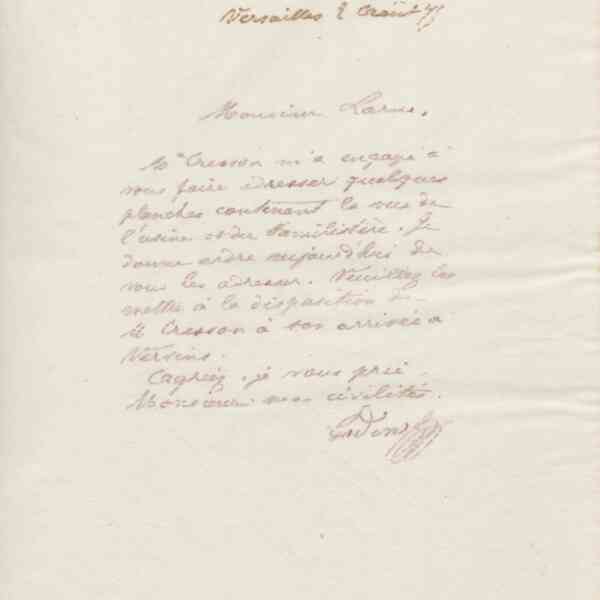 Versailles 2 Août 75
Monsieur Larue,
Mr Cresson m'a engagé à
vous faire adresser quelques
planches contenant la vue de
l'usine et du Familistère. Je
donne ordre aujourd'hui de
vous les adresser. Veuillez les
mettre à la disposition de
M Cresson à son arrivée à
Vervins.
Agréez, je vous prie
Monsieur mes civilités.
Godin